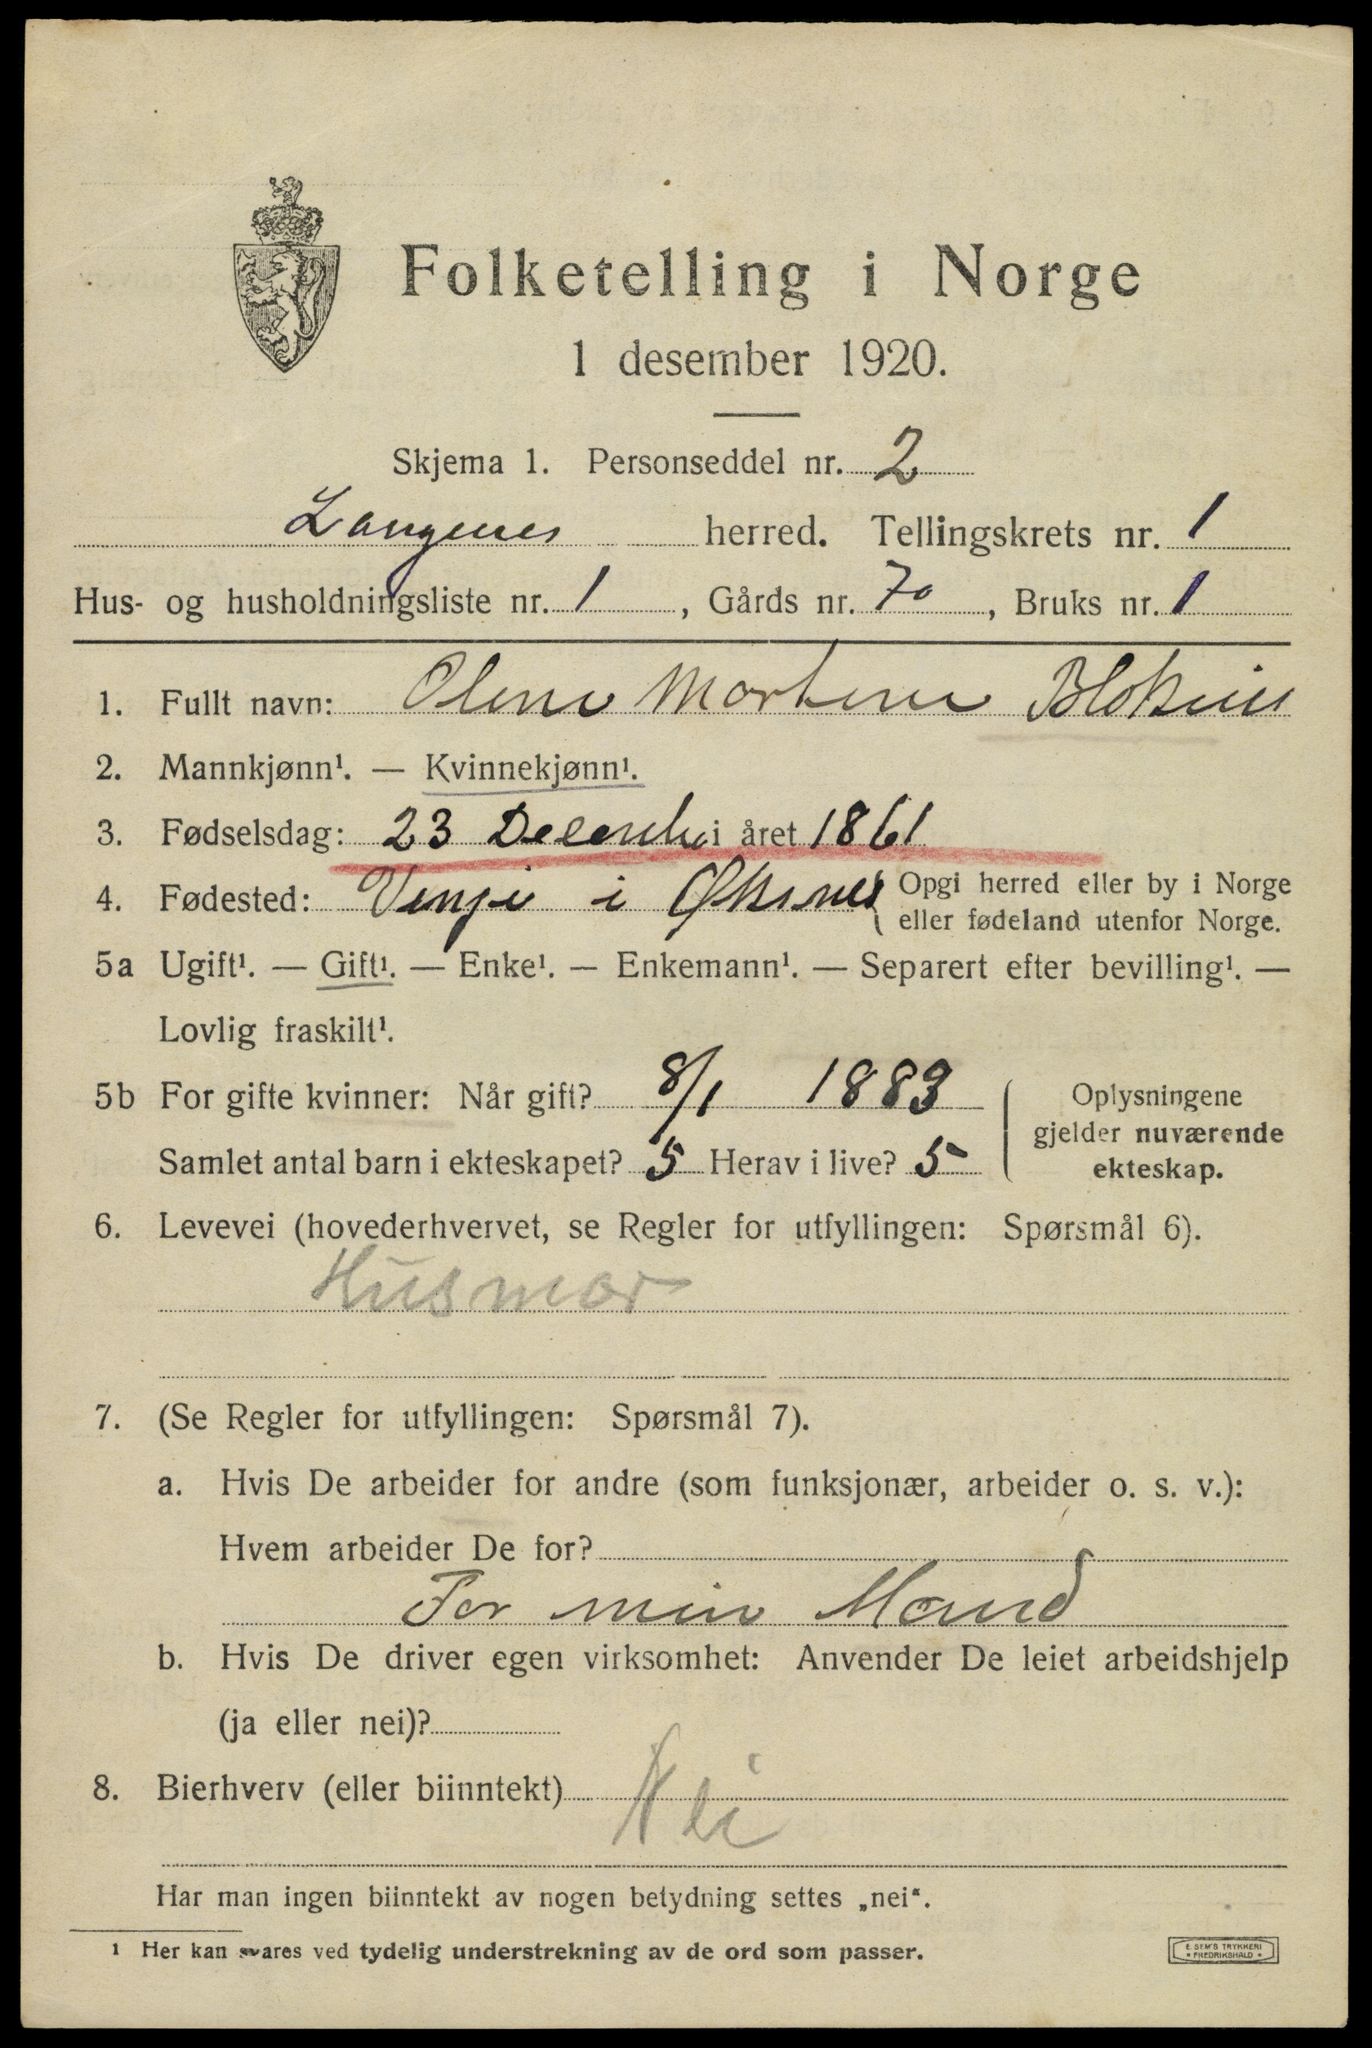 Folketelling i Norge
1 desember 1920.
Skjema 1. Personseddel nr. 2
Langenes herred. Tellingskrets nr. 1
Hus- og husholdningsliste nr. 1, Gårds nr. 70, Bruks nr. 1
1. Fullt navn: Olene Martene
2. Mannkjønn¹. — Kvinnekjønn¹.
3. Fødselsdag: 23 Decemb i året 1861
4. Fødested: i Øksnes { Opgi herred eller by i Norge
eller fødeland utenfor Norge.
5a Ugift¹. — Gift¹. — Enke¹. — Enkemann¹. — Separert efter bevilling¹. —
Lovlig fraskilt¹.
5b For gifte kvinner: Når gift? 8/1 1883
Samlet antal barn i ekteskapet? 5 Herav i live? 5
Oplysningene
gjelder nuværende
ekteskap.
6. Levevei (hovederhvervet, se Regler for utfyllingen: Spørsmål 6).
Husmor
7. (Se Regler for utfyllingen: Spørsmål 7).
a. Hvis De arbeider for andre (som funksjonær, arbeider o. s. v.):
Hvem arbeider De for?
For min Mand
b. Hvis De driver egen virksomhet: Anvender De leiet arbeidshjelp
(ja eller nei)?
8. Bierhverv (eller biinntekt) Nei
Har man ingen biinntekt av nogen betydning settes „nei“.
1 Her kan svares ved tydelig understrekning av de ord som passer.
E SEM'S TRYKKERI
* FREDRIKSHALD *